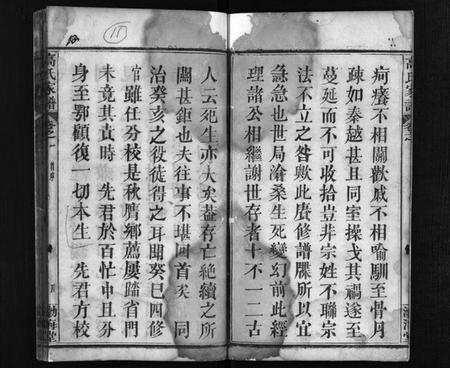 痾癢不相關歡戚不相喻馴至骨月
疎如秦越甚且同室操戈其禍遂至
蔓延而不可收拾豈非宗姓不聯宗
法不立之咎歟此賡修譜牒所以宜
急急也世局滄桑生死變幻前此經
理諸公相繼謝世存者十不一二古
人云死生亦大矣葢存亡絶續之所
關甚鉅也夫往事不堪回首矣 同
治癸亥之役徒得之耳聞癸巳四修
惟任分校是秋膺鄉薦屢踏省門
未竟其責時 先君於百忙中且分
身至鄂顧復一切本生 先君方校
高氏家譜
卷之一
渤海堂
11